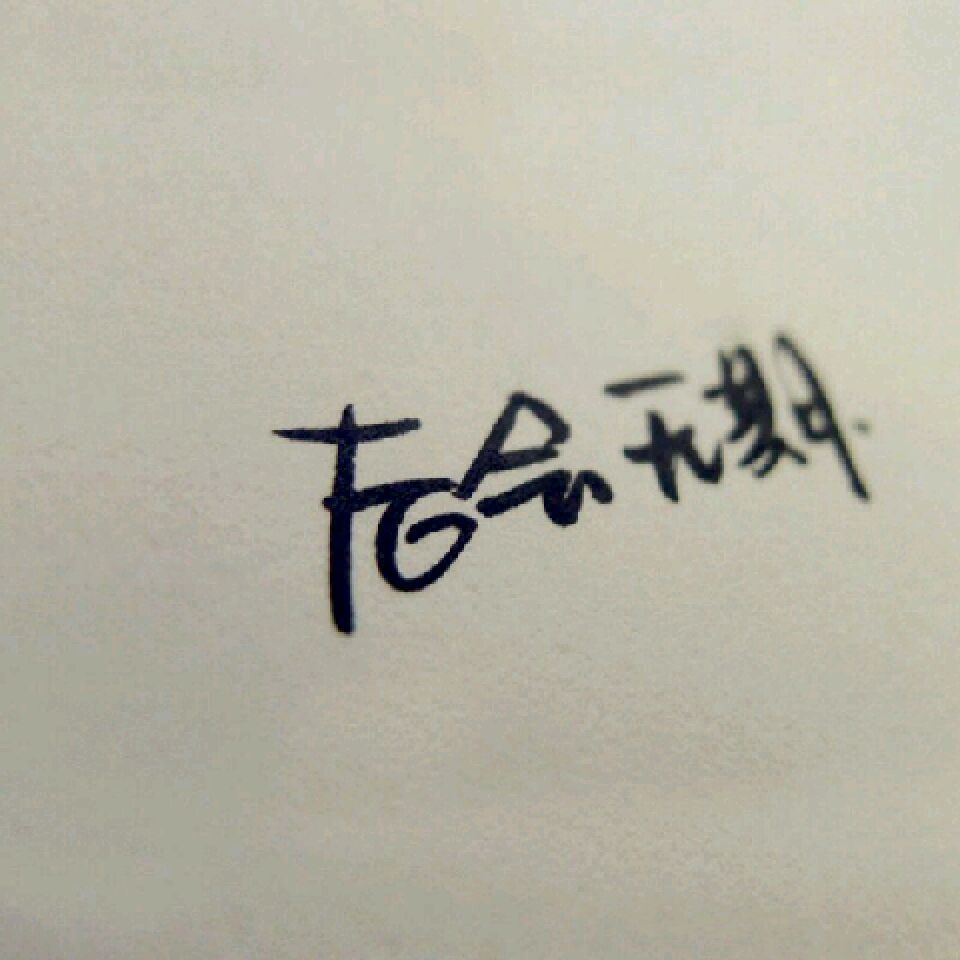 后会无期.